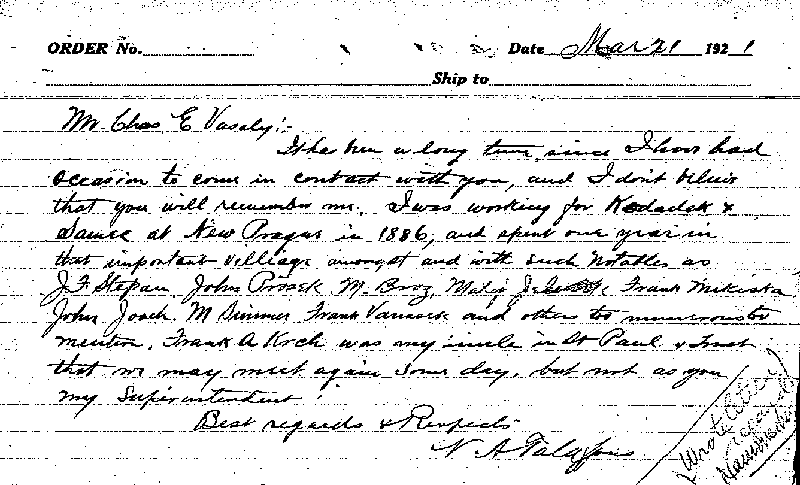 ORDER No. Date Mar 21 1921
Ship to
Mr Chas E Vasaly:-
It has been a long time since I have had
occasion to come in contact with you, and I don't believe
that you will remember me. I was working for &
at New Prague in 1886, and spent one year in
that important village amongst and with such notables as
J. F. Stepan, John Prosek M. Broz, Frank Mikiska
John M Simmer Frank and others too numerous to
mention. Frank A Krch was my uncle in St Paul & trust
that we may meet again some day, but not as you
my Superintendent!
Best regards & Respects
N. A.
Wrote letter